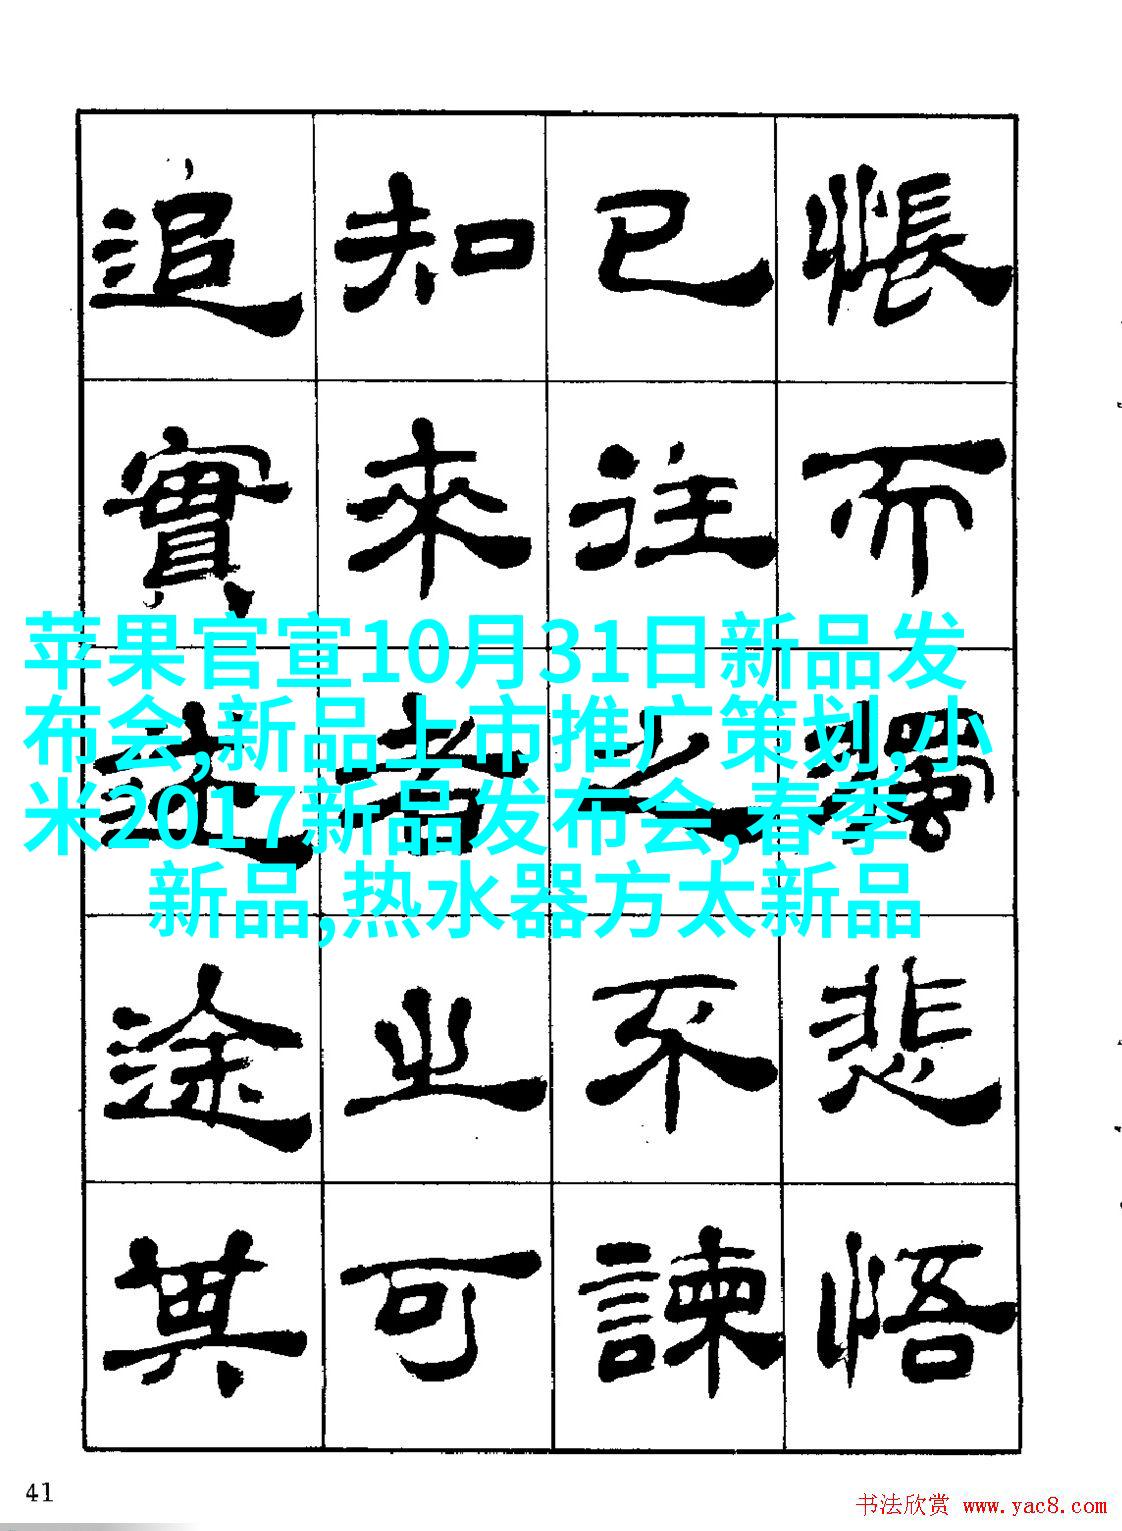 悵而獨悲悟
已往之不諫
知來者之可
追實迷途其
苹果官宣10月31日新品发
布会,新品上市推广策划,小
米2017新品发布会,春季
新品,热水器方太新品
41
书法欣赏 www.yac8.com